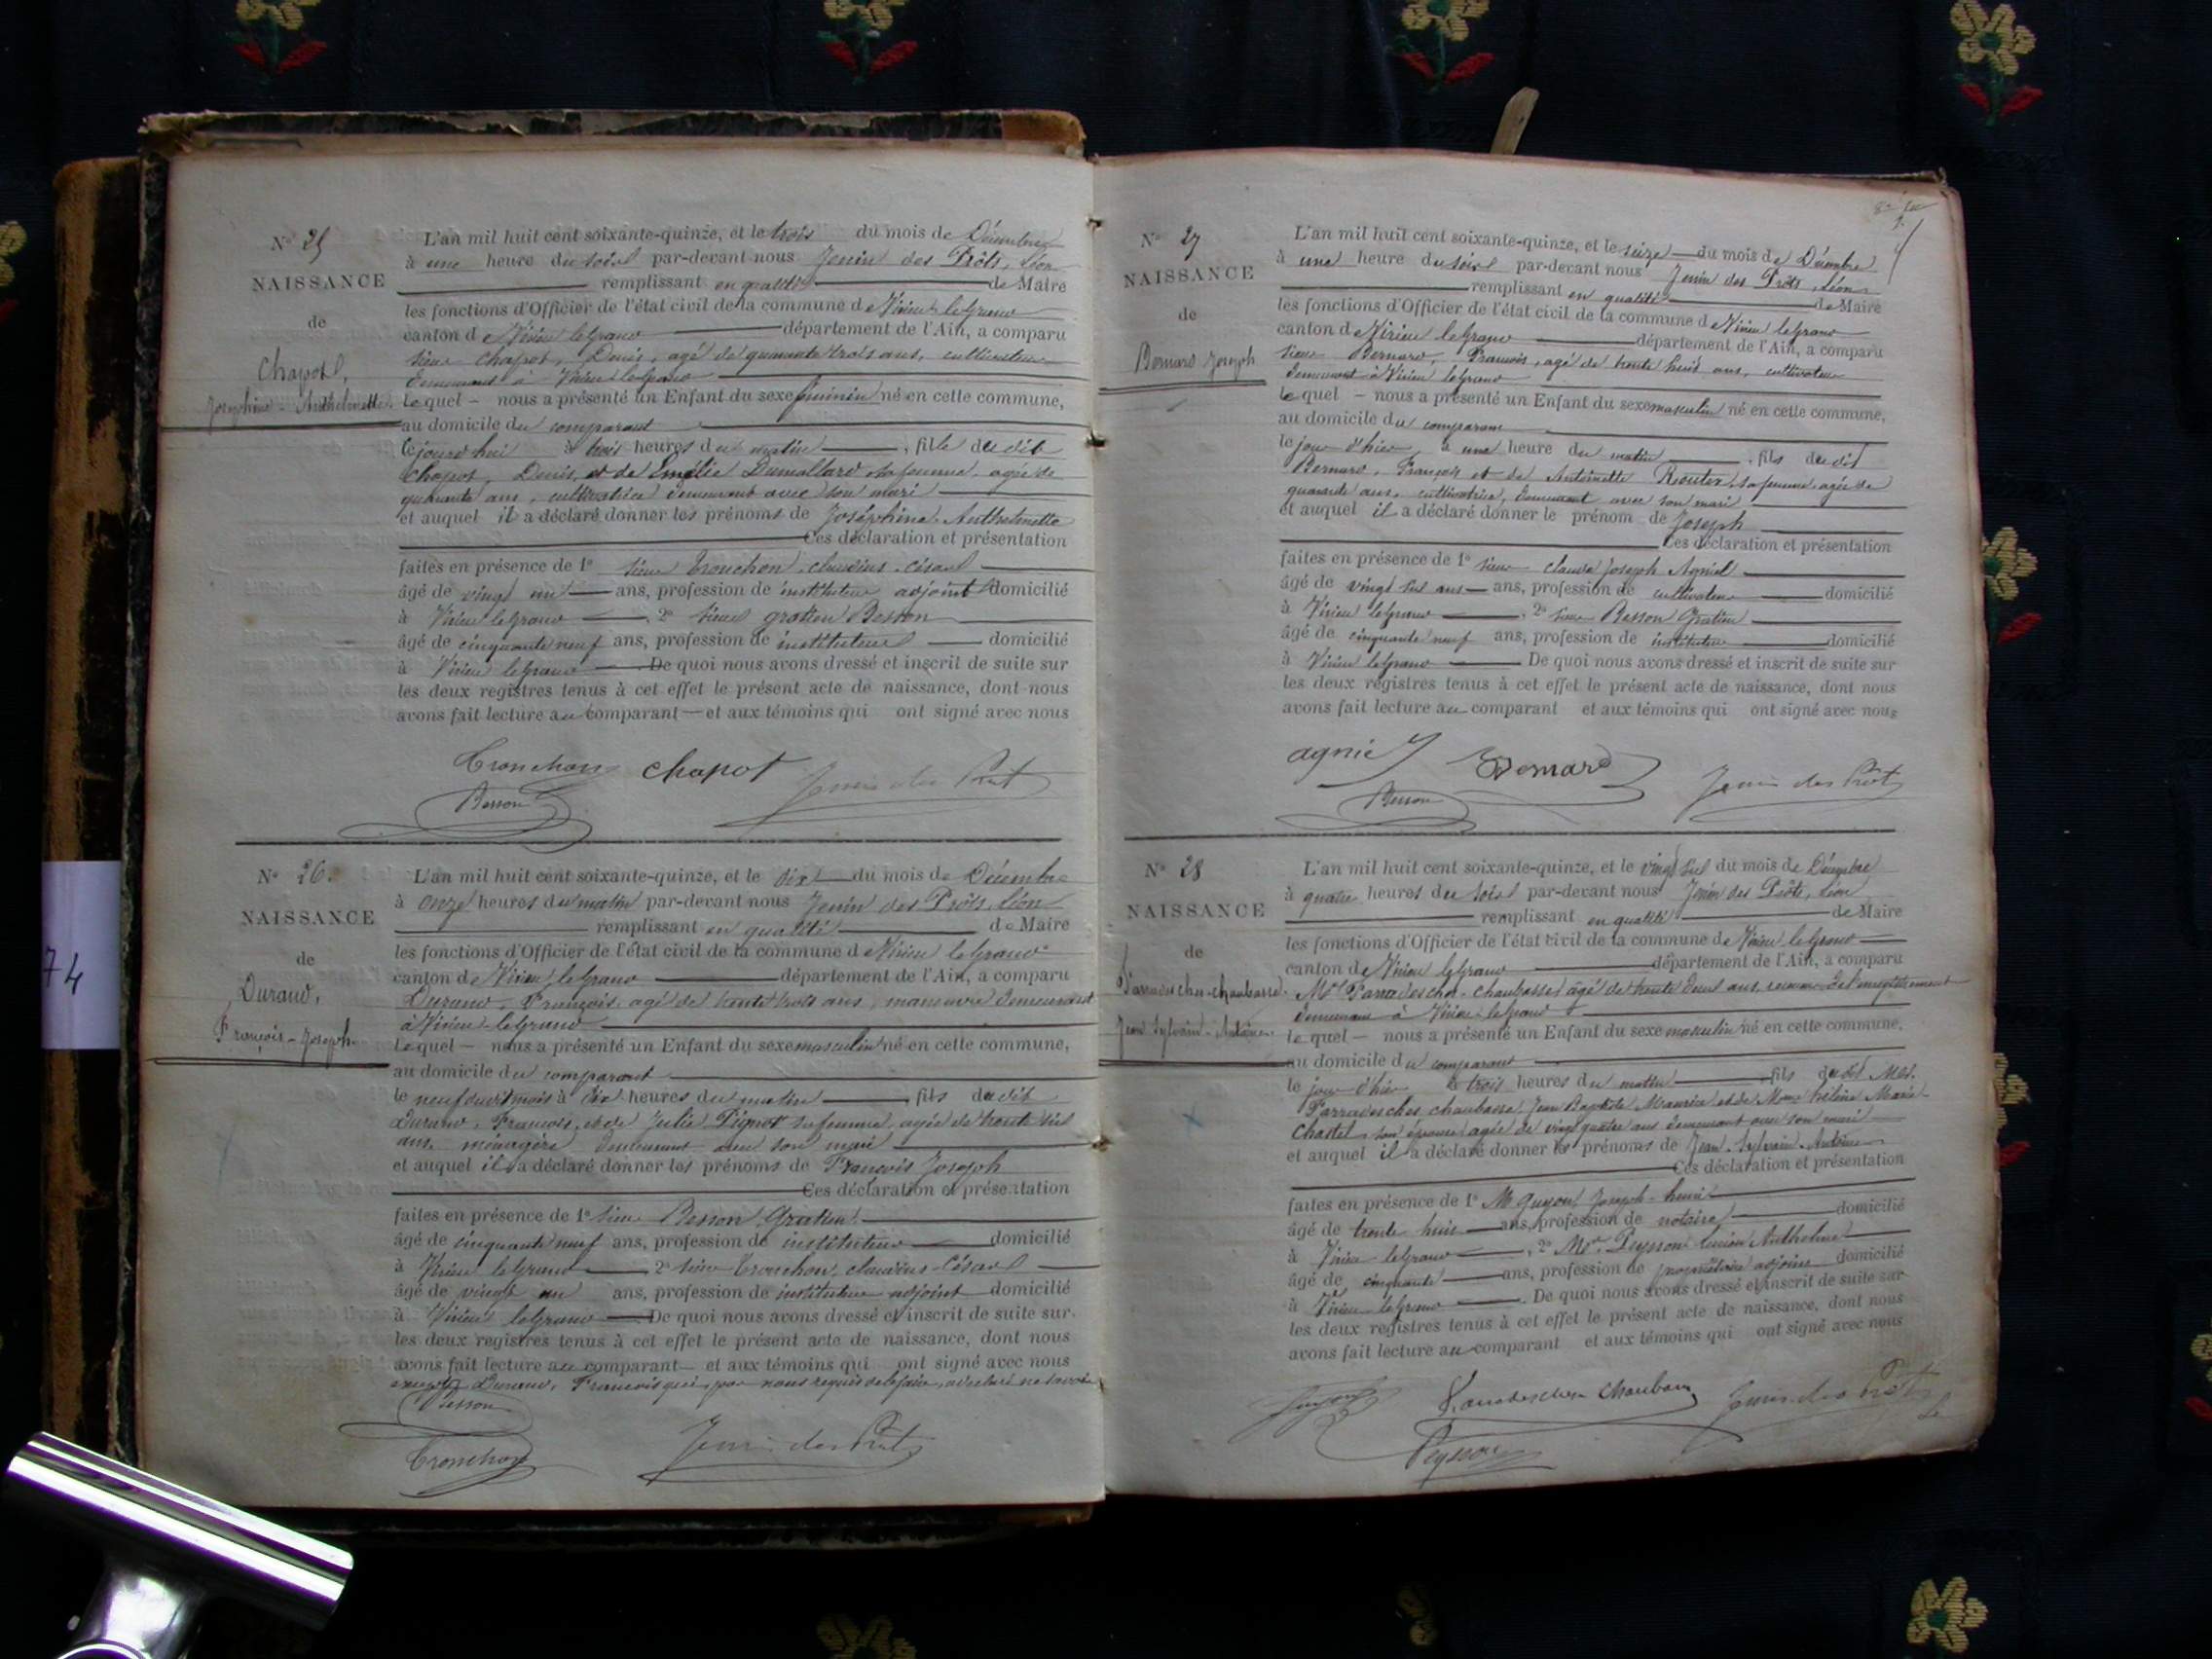 N° 25
NAISSANCE
de
Chapot,
Joséphine-Anthelmette
L'an mil huit cent soixante-quinze, et le trois du mois de Décembre
à une heure du soir par-devant nous Jenin des Prôts, Léon
remplissant en qualité de Maire
les fonctions d'Officier de l'état civil de la commune de Virieu-le-Grand
canton de Virieu le Grand département de l'Ain, a comparu
sieur Chapot, Denis, agé de quarante trois ans, cultivateur
demeurant à Virieu-le-Grand
lequel nous a présenté un Enfant du sexe féminin né en cette commune,
au domicile du comparant
le jourd'hui à trois heures du matin, fille du dit
Chapot, Denis, et de Emélie Dumollard, sa femme, agée de
quarante ans, cultivatrice demeurant avec son mari
et auquel il a déclaré donner les prénoms de Joséphine Anthelmette
Ces déclaration et présentation
faites en présence de 1° sieur Tronchon, claudius-César
âgé de vingt un ans, profession de instituteur adjoint domicilié
à Virieu le Grand, 2° sieur gratien Besson
âgé de cinquante neuf ans, profession de instituteur domicilié
à Virieu le Grand De quoi nous avons dressé et inscrit de suite sur
les deux registres tenus à cet effet le présent acte de naissance, dont nous
avons fait lecture au comparant et aux témoins qui ont signé avec nous
Tronchon chapot Jenin des Prôts
Besson
N° 26.
NAISSANCE
de
Durand,
François-Joseph
L'an mil huit cent soixante-quinze, et le dix du mois de Décembre
à onze heures du matin par-devant nous Jenin des Prôts, Léon
remplissant en qualité de Maire
les fonctions d'Officier de l'état civil de la commune de Virieu le Grand
canton de Virieu le Grand département de l'Ain, a comparu
Durand, François, agé de trente trois ans, manœuvre demeurant
à Virieu-le-Grand
Lequel nous a présenté un Enfant du sexe masculin né en cette commune,
au domicile du comparant
le neuf du dit mois à dix heures du matin, fils du dit
Durand, François, et de Julie Pignot sa femme, agée de trente six
ans, ménagère demeurant avec son mari
et auquel il a déclaré donner les prénoms de François Joseph
Ces déclaration et présentation
faites en présence de 1° sieur Besson Gratien
âgé de cinquante neuf ans, profession de instituteur domicilié
à Virieu le Grand 2° sieur Tronchon, claudius-César
âgé de vingt un ans, profession de instituteur adjoint domicilié
à Virieu le Grand De quoi nous avons dressé et inscrit de suite sur
les deux registres tenus à cet effet le présent acte de naissance, dont nous
avons fait lecture au comparant et aux témoins qui ont signé avec nous
excepté Durand, François qui, par nous requis de le faire, a déclaré ne savoir
Besson
Tronchon Jenin des Prôts
74
N° 27
NAISSANCE
de
Bernard Joseph
L'an mil huit cent soixante-quinze, et le seize du mois de Décembre
à une heure du soir par-devant nous Jenin des Prôts, Léon
remplissant en qualité de Maire
les fonctions d'Officier de l'état civil de la commune de Virieu le Grand
canton de Virieu le Grand département de l'Ain, a comparu
sieur Bernard, François, agé de trente huit ans, cultivateur
demeurant à Virieu le Grand
lequel nous a présenté un Enfant du sexe masculin né en cette commune,
au domicile du comparant
le jour d'hier à une heure du matin, fils du dit
Bernard, François et de Antoinette Routex, sa femme, agée de
quarante ans, cultivatrice, demeurant avec son mari
et auquel il a déclaré donner le prénom de Joseph
Ces déclaration et présentation
faites en présence de 1° sieur claude Joseph Agniel
âgé de vingt six ans ans, profession de cultivateur domicilié
à Virieu le Grand, 2° sieur Besson Gratien
âgé de cinquante neuf ans, profession de instituteur domicilié
à Virieu le Grand De quoi nous avons dressé et inscrit de suite sur
les deux registres tenus à cet effet le présent acte de naissance, dont nous
avons fait lecture au comparant et aux témoins qui ont signé avec nous
agniel Bernard Jenin des Prôts
Besson
N° 28
NAISSANCE
de
Parradesches-chaubasse
Jean Sylvain-Antoine
L'an mil huit cent soixante-quinze, et le vingt six du mois de Décembre
à quatre heures du soir par-devant nous Jenin des Prôts, Léon
remplissant en qualité de Maire
les fonctions d'Officier de l'état civil de la commune de Virieu le Grand
canton de Virieu le Grand département de l'Ain, a comparu
Mr Parradesches-chaubasse âgé de trente deux ans, receveur de l'enregistrement
demeurant à Virieu-le-Grand
lequel nous a présenté un Enfant du sexe masculin né en cette commune,
au domicile du comparant
le jour d'hier à trois heures du matin fils du dit Mr.
Parradesches chaubasse Jean Baptiste Maurice et de Mme hélène Marie
Chastel, son épouse agée de vingt quatre ans demeurant avec son mari
et auquel il a déclaré donner les prénoms de Jean-Sylvain-Antoine
Ces déclaration et présentation
faites en présence de 1° M Guyon Joseph-henri
âgé de trente huit ans, profession de notaire domicilié
à Virieu le Grand, 2° Mr. Peysson lucien Anthelme
âgé de cinquante ans, profession de propriétaire adjoint domicilié
à Virieu le Grand. De quoi nous avons dressé et inscrit de suite sur
les deux registres tenus à cet effet le présent acte de naissance, dont nous
avons fait lecture au comparant et aux témoins qui ont signé avec nous
Parradesches Chaubasse Jenin des Prôts
Peysson